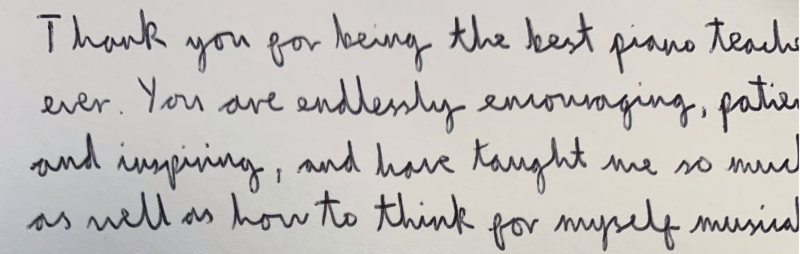 Thank you for being the best piano teache
ever. You are endlessly encouraging, patien
and inspiring, and have taught me so much
as well as how to think for myself musical